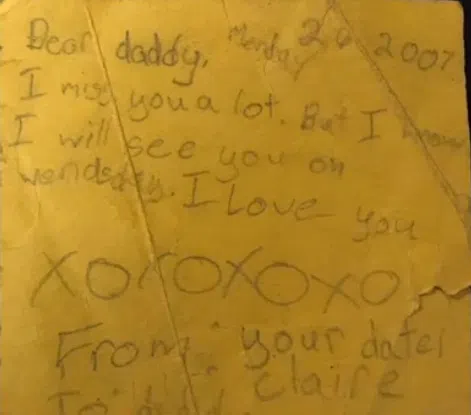 Dear daddy, Monday 20 2007
I miss you a lot. But I know
I will see you on
wendsday. I Love you
XOXOXOXO
From: your dater
claire
To dad.